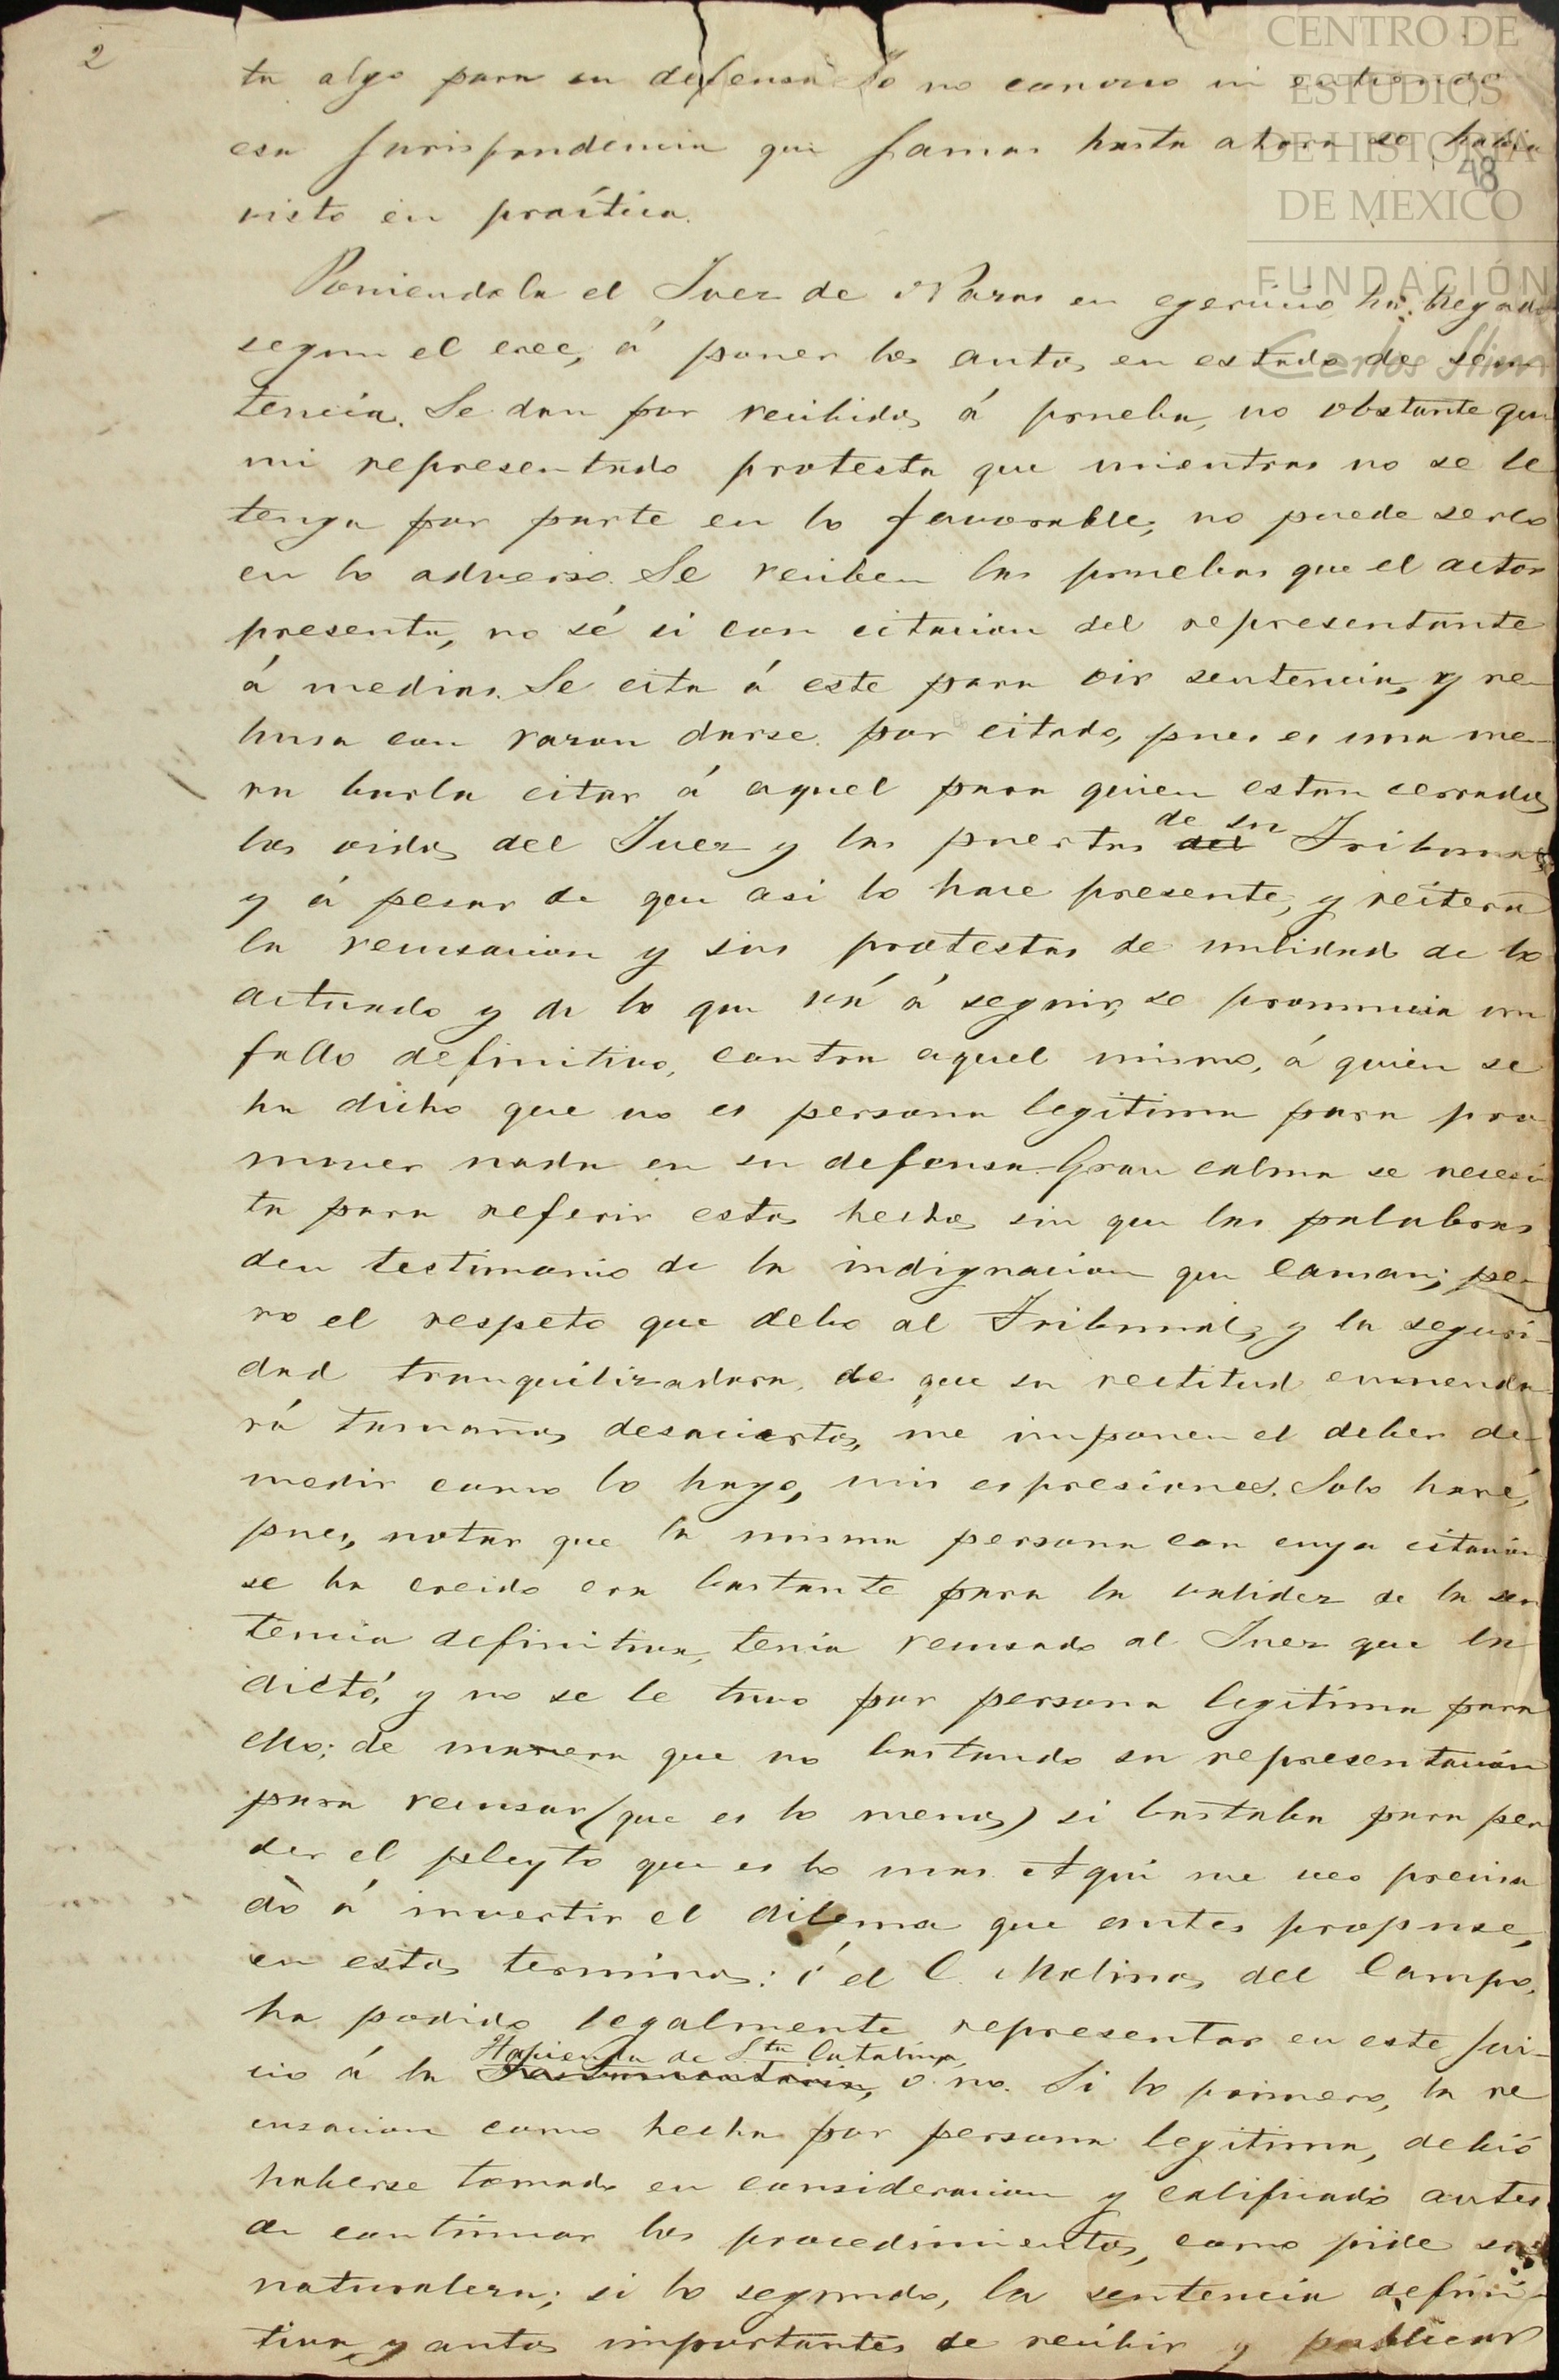 2
CENTRO DE
ESTUDIOS
DE HISTORIA
DE MEXICO
FUNDACIÓN
Carlos Slim
48
ta algo para su defensa Yo no conosco ni entiendo
esa Jurisprudencia que Jamas hasta ahora se habia
visto en practica.
Poniendola el Juez de Parras en egercicio ha llegado
segun el cree, á poner los autos en estado de sen-
tencia. Se dan por recibidos á prueba, no obstante que
mi representado protesta que mientras no se le
tenga por parte en lo favorable, no puede serlo
en lo adverso. Se reciben las pruebas que el actor
presenta, no sé si con citacion del representante
á medias. Se cita á este para oir sentencia, y re-
husa con razon darse por citado, pues es una me-
ra burla citar á aquel para quien estan cerrados
los oidos del Juez y las puertas del de su Tribunal
y á pesar de que asi lo hace presente, y reitera
la recusacion y sus protestas de nulidad de lo
actuado y de lo que vá á seguir, se pronuncia un
fallo definitivo, contra aquel mismo, á quien se
ha dicho que no es persona legitima para pro
mover nada en su defensa. Gran calma se necesi
ta para referir estos hechos sin que las palabras
den testimonio de la indignacion que causan; pe-
ro el respeto que debo al Tribunal, y la seguri-
dad tranquilizadora, de que su rectitud enmenda
rá tamaños desaciertos, me imponen el deber de
medir como lo hago, mis espresiones. Solo haré,
pues, notar que la misma persona con cuya citacion
se ha creido era bastante para la validez de la sen
tencia definitiva, tenia recusado al Juez que la
dictó, y no se le tuvo por persona legitima para
ello; de manera que no bastando su representacion
para recusar (que es lo menos) si bastaba para per
der el pleyto que es lo mas. Aqui me veo precisa
do á invertir el dilema que antes propuse,
en estos terminos: ó el C. Molinos del Campo,
ha podido legalmente representar en este Jui-
cio á la Testamentaria, Hacienda de Sta Catalina, ó no. Si lo primero, la re
cusacion como hecha por persona legitima, debió
haberse tomado en consideracion y calificado antes
de continuar los procedimientos, como pide su
naturaleza; si lo segundo, la sentencia defini-
tiva y autos importantes de recibir y publicar